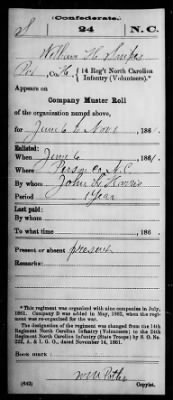 (Confederate.)
S 24 N. C.
William H. Snipes
Pvt, Co. H, { 14 Reg't North Carolina
Infantry (Volunteers).*
Appears on
Company Muster Roll
of the organization named above,
for June 6 to Nov 1, 186
Enlisted:
When June 6, 186 .
Where Person Co. N.C.
By whom John G. Harris
Period 1 Year
Last paid:
By whom
To what time , 186 .
Present or absent present
Remarks:
*This regiment was organized with nine companies in July,
1861. Company D was added in May, 1862, when the regi-
ment was re-organized for the war.
The designation of the regiment was changed from the 14th
Regiment North Carolina Infantry (Volunteers) to the 24th
Regiment North Carolina Infantry (State Troops) by S. O. No.
222, A. & I. G. O., dated November 14, 1861.
Book mark:
(642) Copyist.